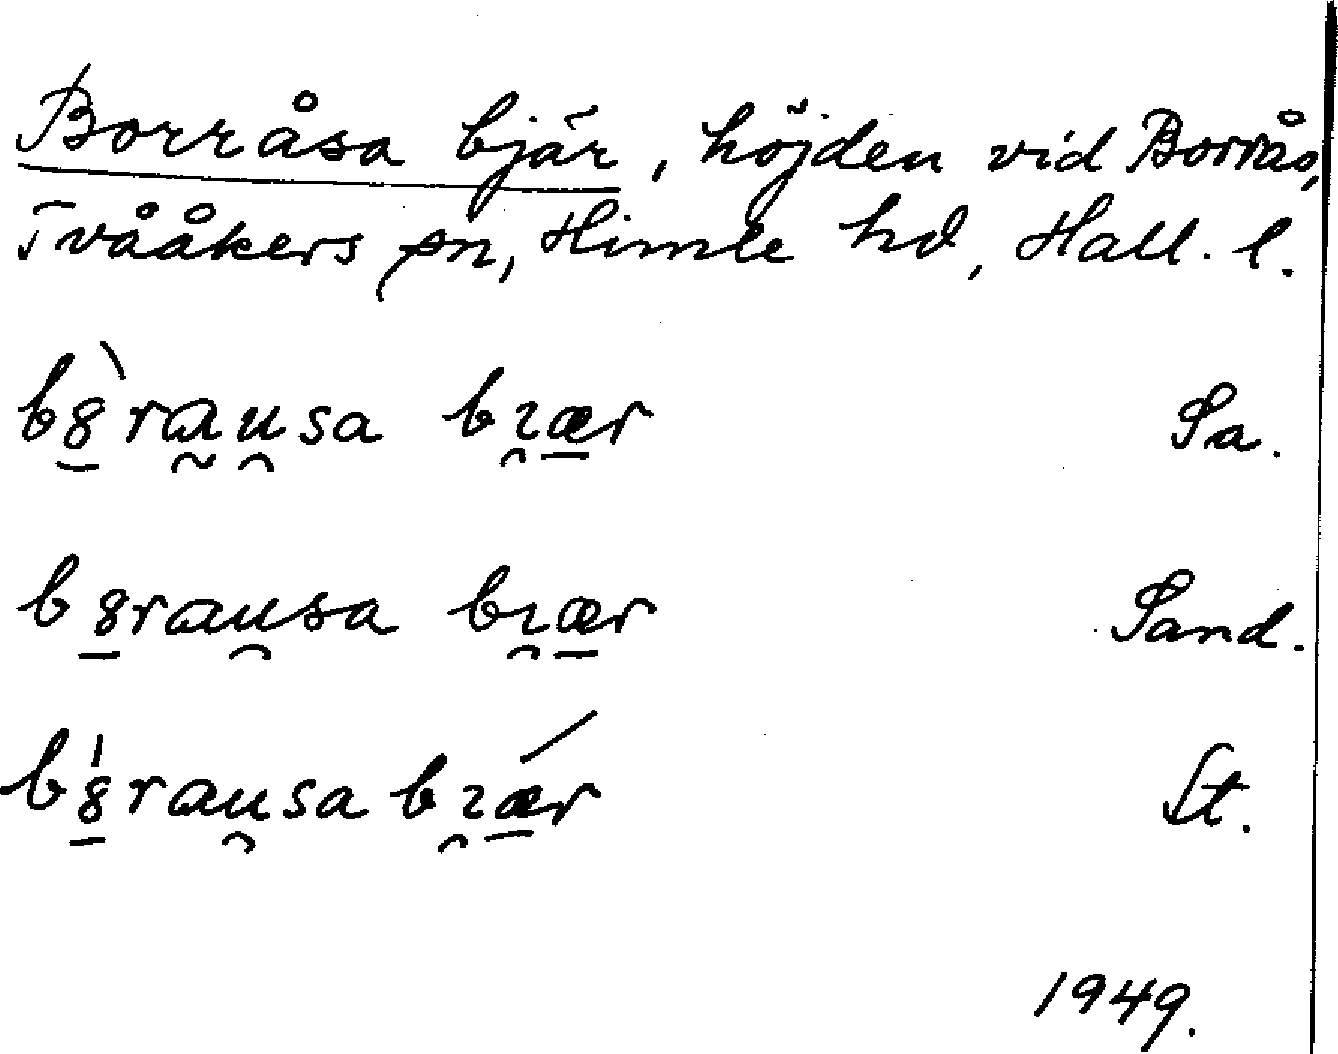 Borråsa bjär, höjden vid Borrås,
Tvååkers sn, Himle hd, Hall. l.
b8̱̀ra̰u̯sa bɿ̯æ̱r Sa.
b8̱rau̯sa bɿ̯æ̱r Sand.
b8̱̍rau̯sa bɿ̯ǽ̱r St.
1949.